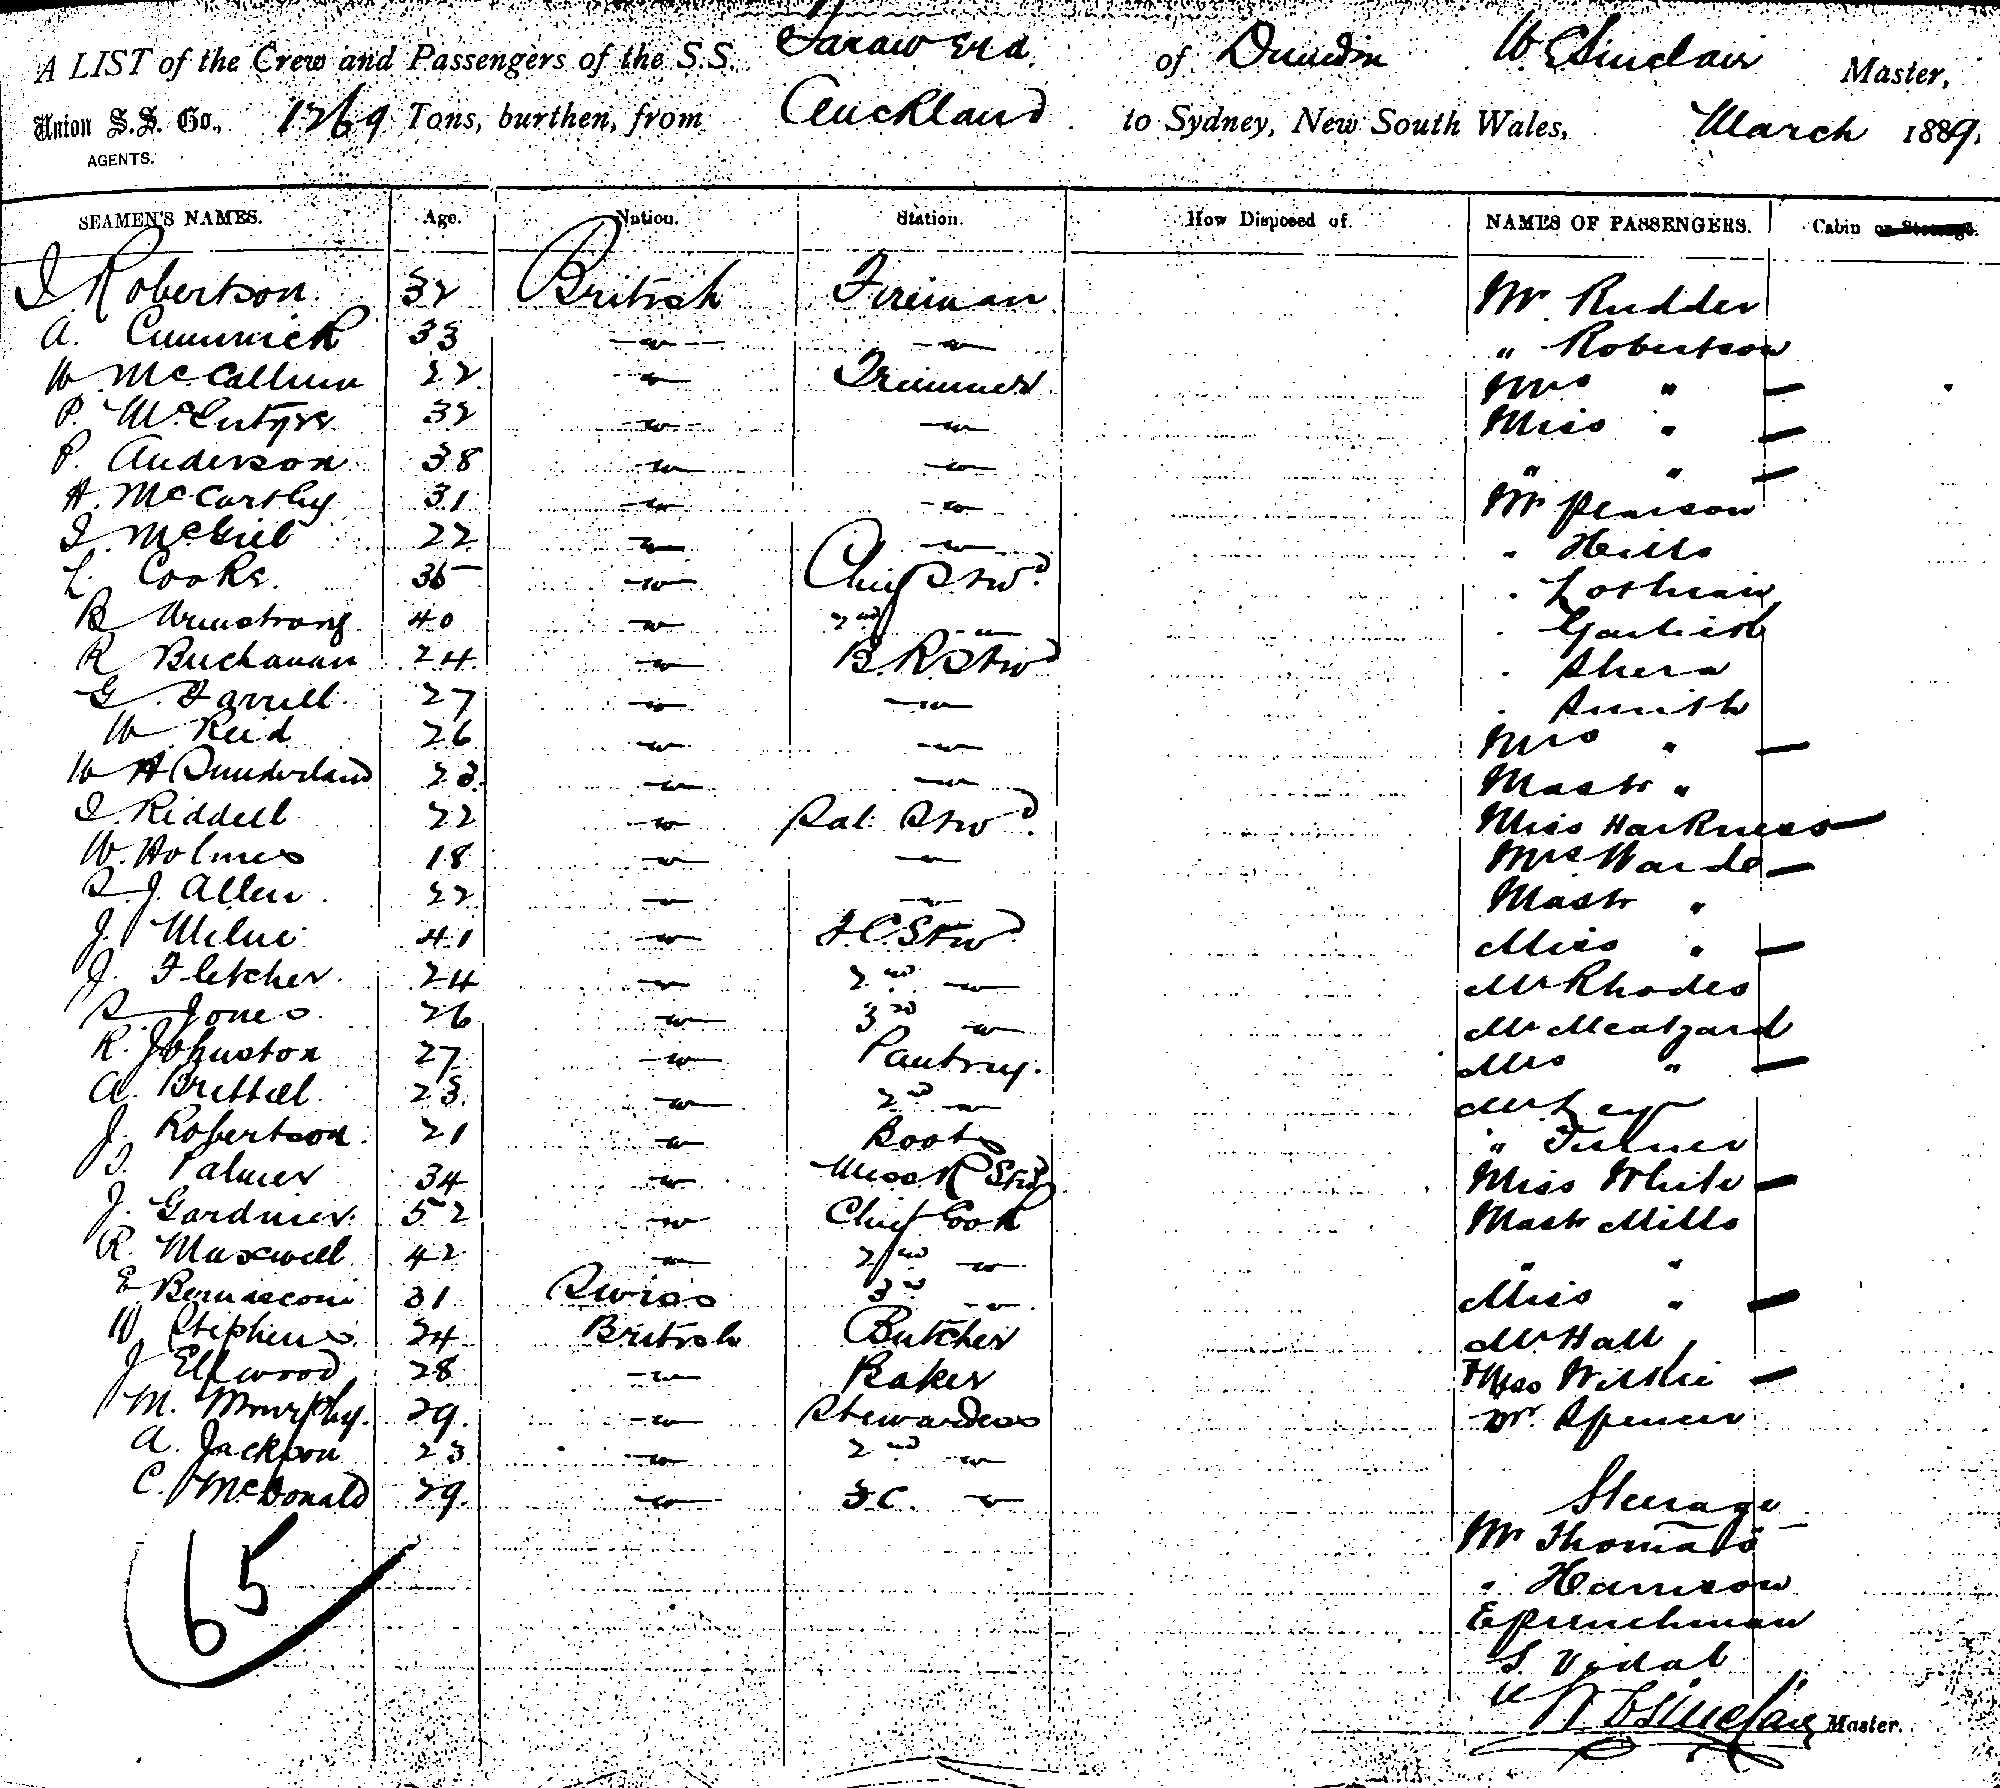 A LIST of the Crew and Passengers of the S.S. Tarawera of Dunedin W. C. Sinclair Master,
Union S.S. Co., 1269 Tons, burthen, from Auckland to Sydney, New South Wales, March 1889.
AGENTS.
SEAMEN'S NAMES. Age. Nation. Station. How Disposed of. NAMES OF PASSENGERS. Cabin or Steerage.
Robertson 32 British Fireman Mr Rudder
A. 33 -"- -"- " Robertson
W McCallum 22 -"- Trimmer Mrs "
P. McIntyre 32 -"- -"- Miss "
P. Anderson 38 -"- -"- " "
H. McCarthy 31 -"- -"- Mr Pearson
22 -"- -"- " Hills
Cooke 35 -"- Chief Stwd " Lothian
B Armstrong 40 -"- 2nd -"- "
R Buchanan 24 -"- B.R. Stwd " Shera
G. Farrell 27 -"- -"- " Smith
W Reid 26 -"- -"- Mrs "
W H Sunderland 23 -"- -"- Mastr "
Riddell 22 -"- Sal. Stwd Miss Harkness
W. Holmes 18 -"- -"- Mrs Warde
S. J. Allen 22 -"- -"- Mastr "
J. Milne 41 -"- F.C. Stwd Miss "
J. Fletcher 24 -"- 2nd -"- Mr Rhodes
S. Jones 26 -"- 3rd -"- Mr
R. Johnston 27 -"- Pantry. Mrs "
A. Brittell 23 -"- 2nd -"- Mr Levy
J. Robertson 21 -"- Boots "
Palmer 34 -"- Mess R Stwd Miss White
J. Gardner 52 -"- Chief Cook Mastr Mills
R. Maxwell 42 -"- 2nd -"- " "
E Bernasconi 31 Swiss 3rd -"- Miss "
W Stephens 24 British Butcher Mr Hall
J Ellwood 28 -"- Baker Miss Wilkie
M. Murphy. 29. -"- Stewardess Mr. Spencer
A. Jackson 23 -"- 2nd -"-
C. McDonald 29. -"- F.C. -"- Steerage
Mr Thomas
" Harrison
65
S Vidal
W C Sinclair Master.